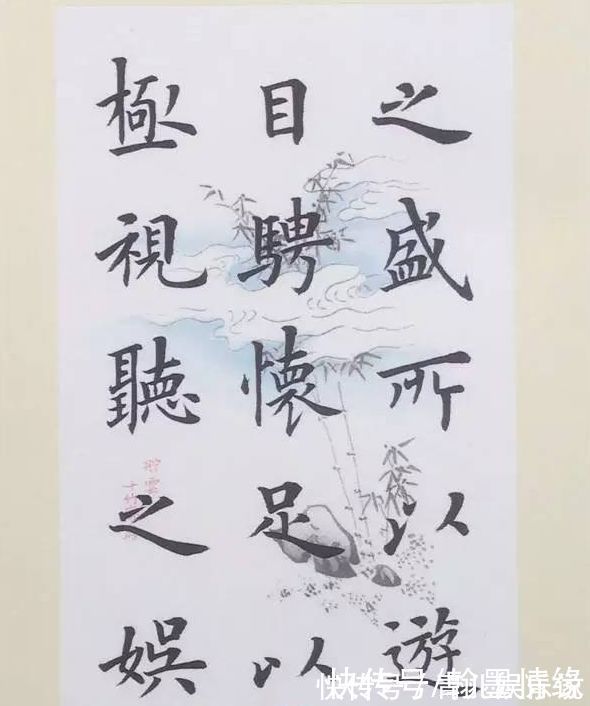 之盛所以遊
目騁懷足以
極視聽之娛
快传号/翰墨情缘